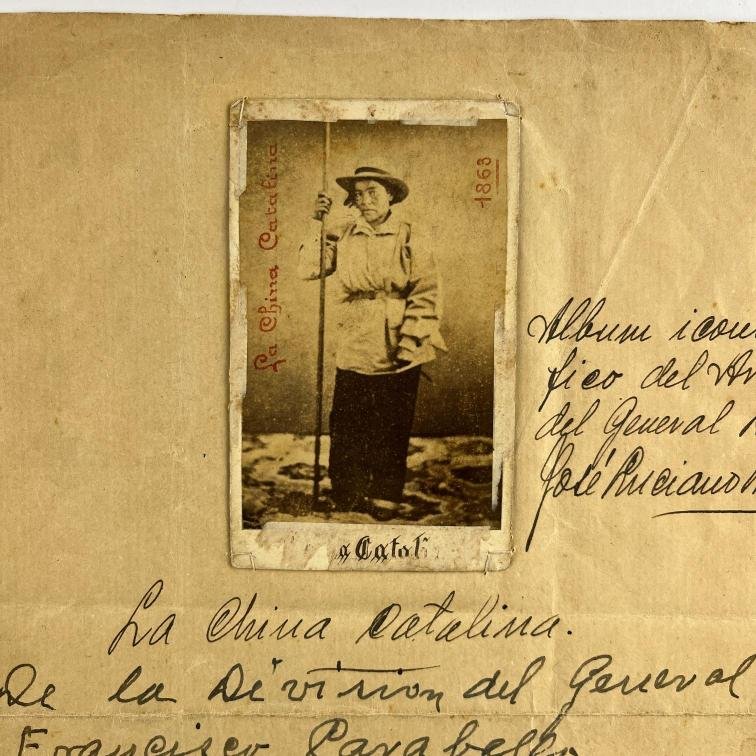 La China Catalina
1863
a Catal
Album icon
fico del Ar
del General
José Ruciano
La China Catalina.
De la División del General
Francisco Parabello